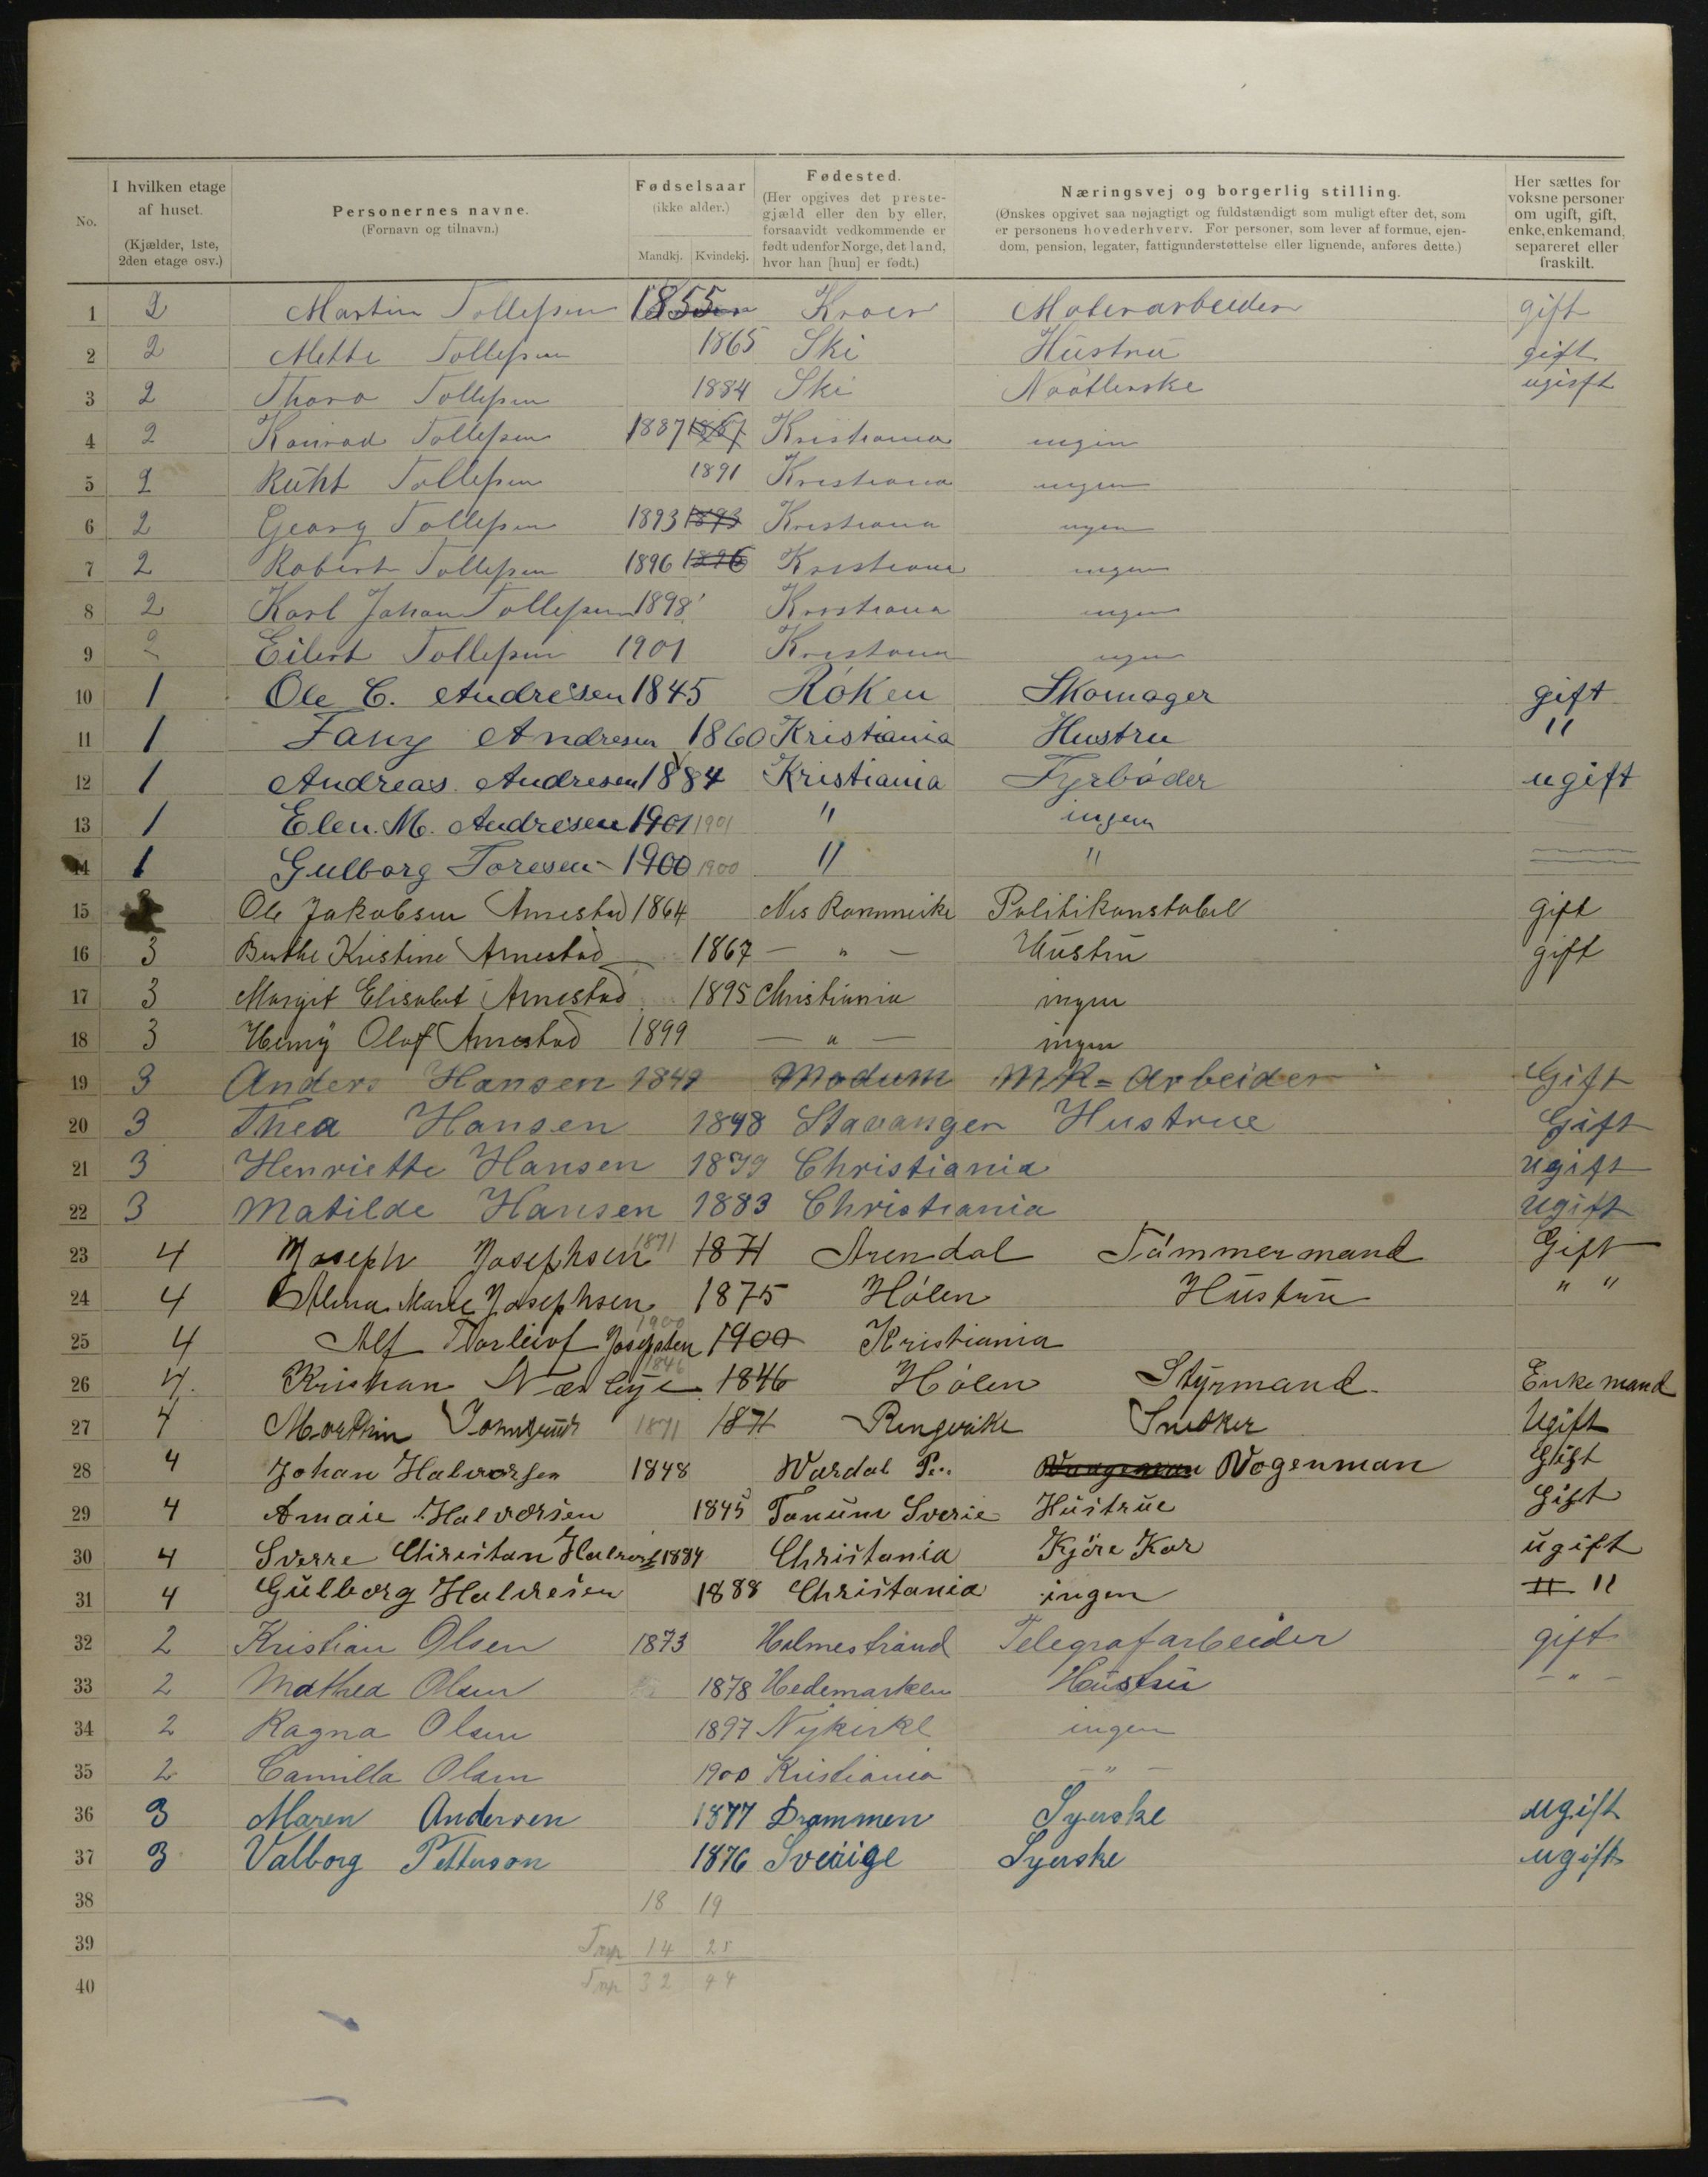 No.
I hvilken etage af huset. (Kjælder, 1ste, 2den etage osv.)
Personernes navne. (Fornavn og tilnavn.)
Fødselsaar (ikke alder.) Mandkj. Kvindekj.
Fødested. (Her opgives det prestegjæld eller den by eller, forsaavidt vedkommende er født udenfor Norge, det land, hvor han [hun] er født.)
Næringsvej og borgerlig stilling. (Ønskes opgivet saa nøjagtigt og fuldstændigt som muligt efter det, som er personens hovederhverv. For personer, som lever af formue, ejendom, pension, legater, fattigunderstøttelse eller lignende, anføres dette.)
Her sættes for voksne personer om ugift, gift, enke, enkemand, separeret eller fraskilt.
1 2 Martin Tollefsen 1855 Kroer Malerarbeider gift
2 2 Mette Tollefsen 1865 Ski Hustru gift
3 2 Thora Tollefsen 1884 Ski Naatlerske ugisft
4 2 Konrad Tollefsen 1887 1887 Kristiania ingen
5 2 Ruht Tollefsen 1891 Kristiana ingen
6 2 Georg Tollefsen 1893 1893 Kristiana ingen
7 2 Robert Tollefsen 1896 1896 Kristiana ingen
8 2 Karl Johan Tollefsen 1898 Kristiana ingen
9 2 Eilert Tollefsen 1901 Kristiana ingen
10 1 Ole C. Andresen 1845 Röken Skomager gift
11 1 Fany Andresen 1860 Kristiania Hustru "
12 1 Andreas Andresen 1884 Kristiania Fyrbøder ugift
13 1 Elen. M. Andresen 1901 1901 " ingen
14 1 Gulborg Toresen 1900 1900 " "
15 Ole Jakobsen Arnestad 1864 Nes Rommerike Politikonstabel gift
16 3 Berthe Kristine Arnestad 1867 — " — Hustru gift
17 3 Margit Elisabet Arnestad 1895 Christiania ingen
18 3 Henry Olaf Arnestad 1899 — " — ingen
19 3 Anders Hansen Modum MK= Arbeider Gift
20 3 Thea Hansen 1848 Stavanger Hustrue Gift
21 3 Henriette Hansen 1879 Christiania Ugift
22 3 Matilde Hansen 1883 Christiania Ugift
23 4 Joseph Josephsen 1871 1871 Arendal Tömmermand Gift
24 4 Alma Marie Josephsen 1875 Hölen Hustru " "
25 4 Alf Thorleiof Josephsen 1900 1900 Kristiania
26 4. Kristian Nærbye 1846 1846 Hölen Styrmand Enkemand
27 4 Marthin 1871 1871 Ringerike Snedker Ugift
28 4 Johan Halvorsen 1848 Wardal P. Vogenman Gift
29 4 Amaie Halvorsen 1845 Tanum Sverie Hustrue Gift
30 4 Sverre Christan Halvors 1884 Christania Kjöre Kar ugift
31 4 Gulborg Halvresen 1888 Christania ingen " "
32 2 Kristian Olsen 1873 Holmestrand Telegrafarbeider gift
33 2 Mathea Olsen 1878 Hedemarken Hustru — " —
34 2 Ragna Olsen 1897 Nykirke ingen
35 2 Camilla Olsen 1900 Kristiania — " —
36 3 Maren Andersen 1877 Drammen Syerske ugift
37 3 Valborg Petterson 1876 Sveiige Syerske ugift
38 18 19
39 14 25
40 32 44